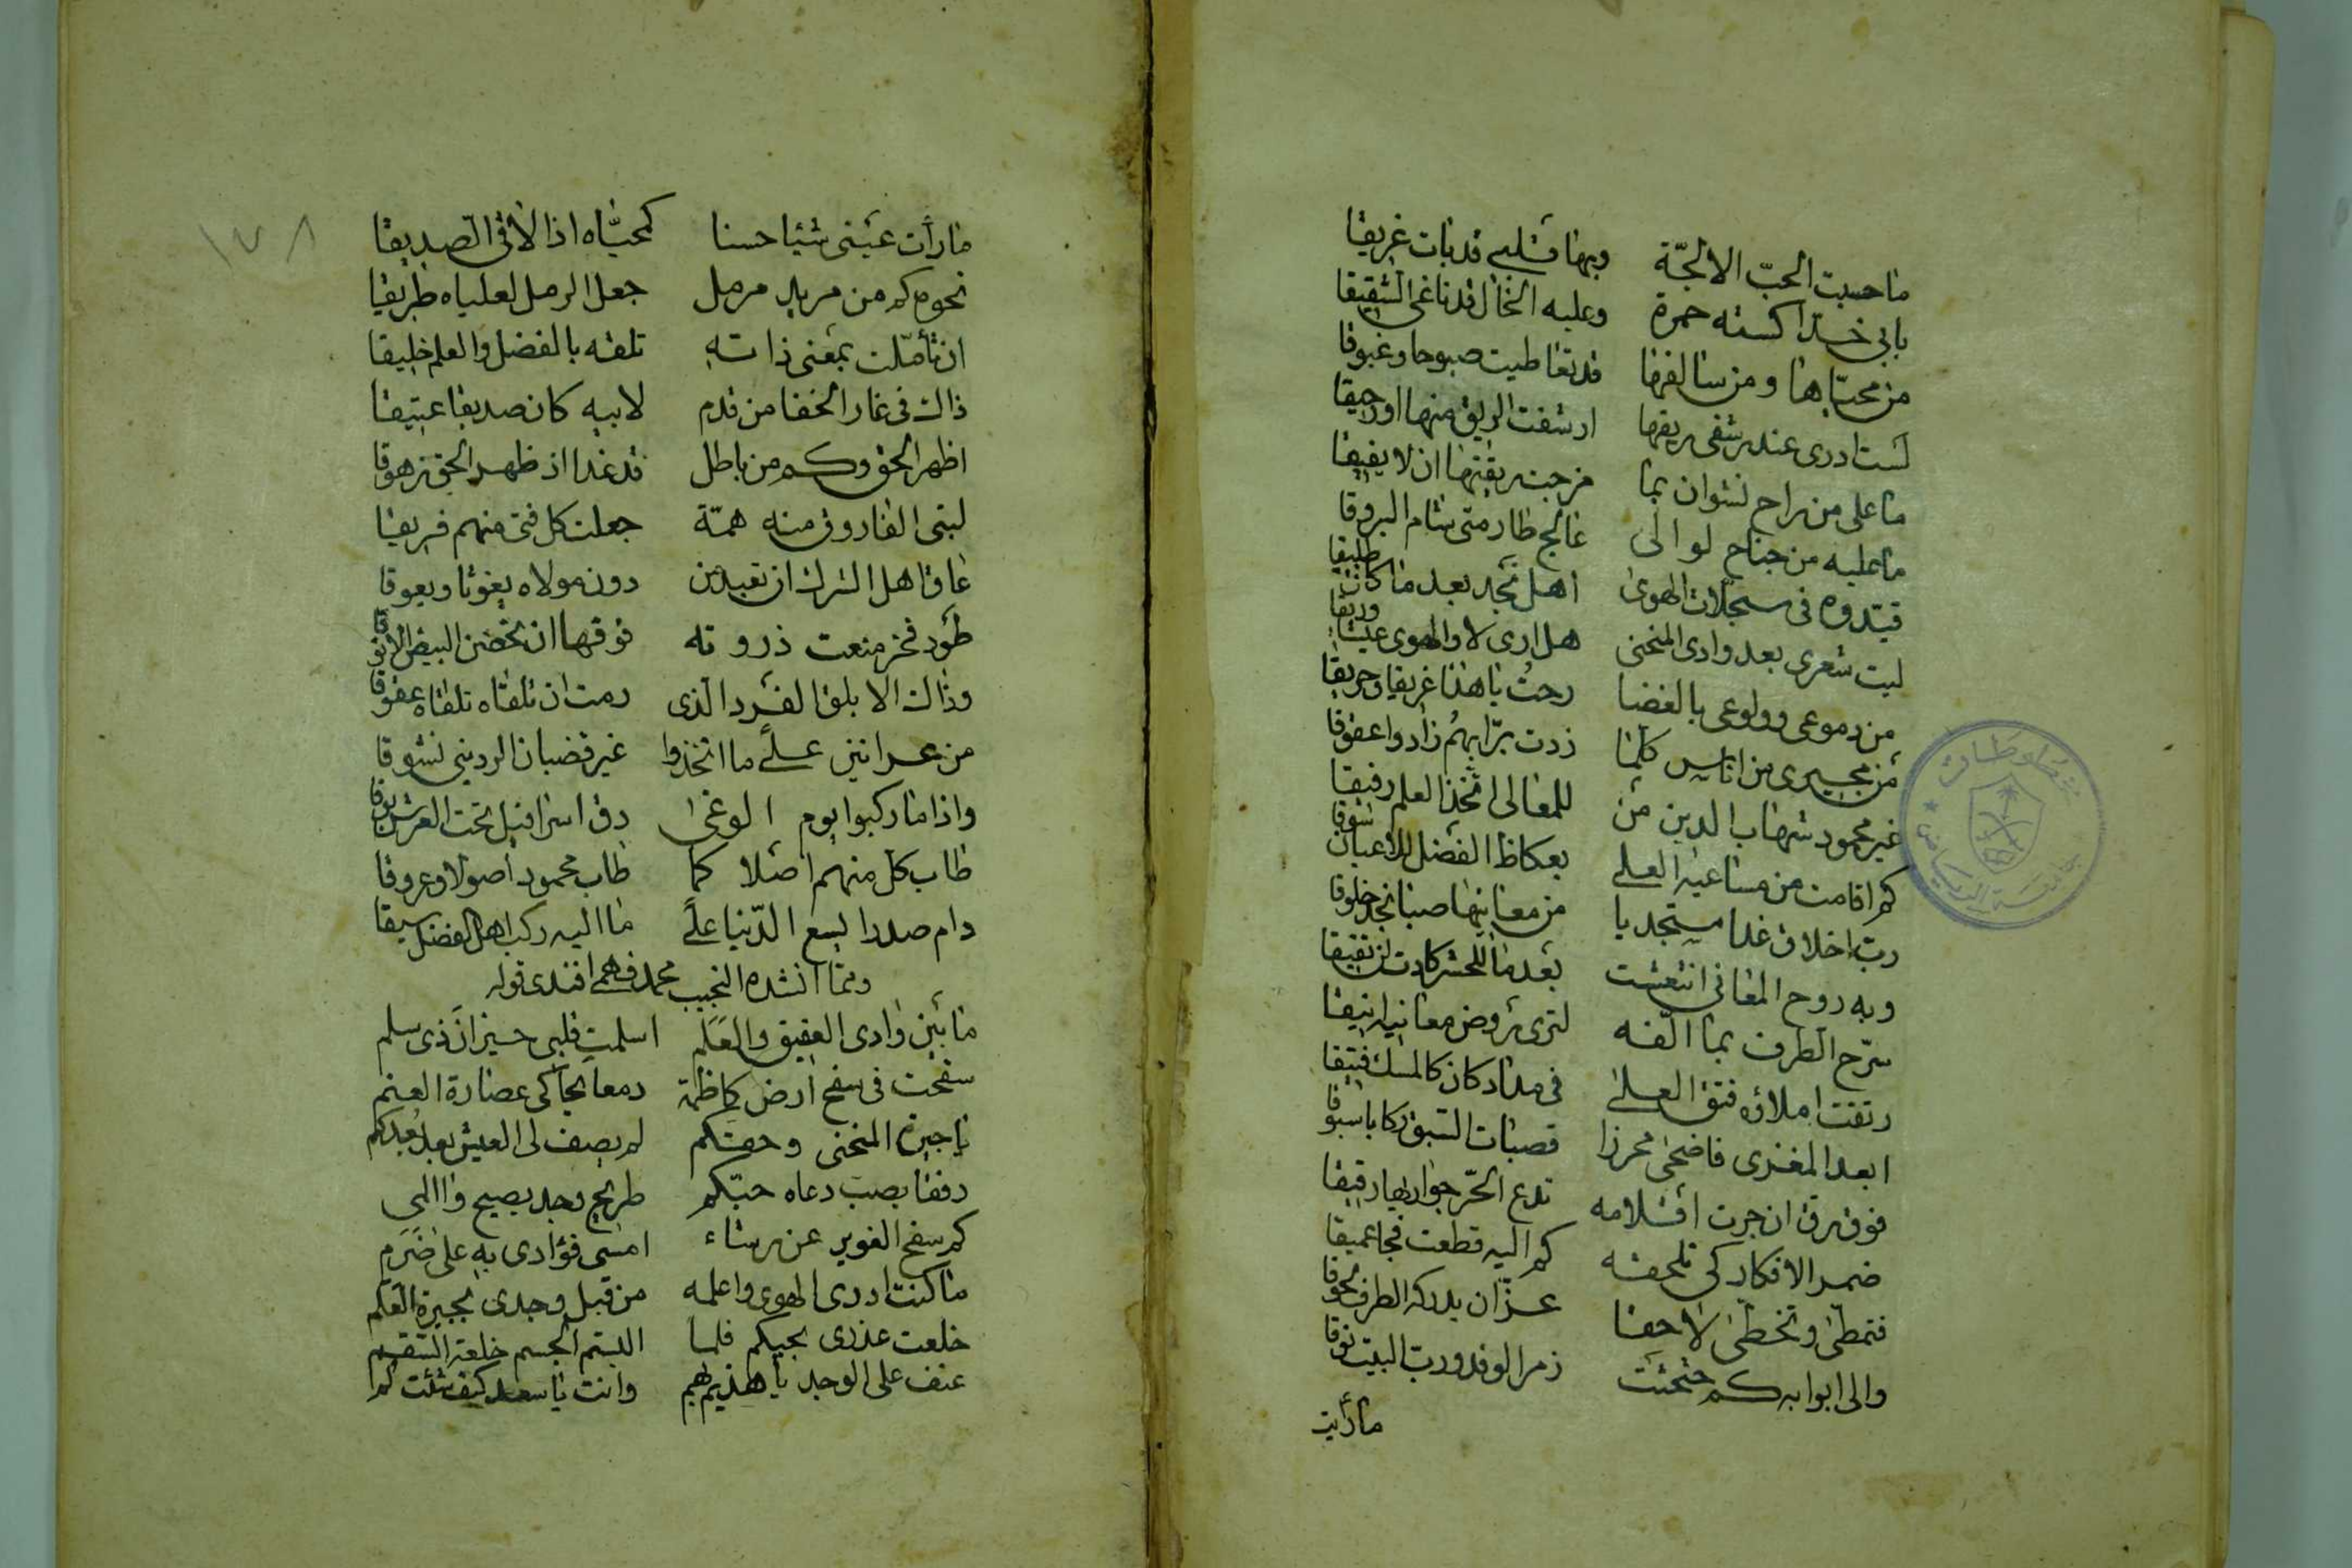 ما حسبت الحبّ الا لجّة وبها قلبي قد بات غريقا
بابي خدا كسته حمرة وعليه الخال قد ناغى الشقيقا
من محيّاها ومن سالفها قد تعاطيت صبوحا وغبوقا
لست ادرى عند رشفى ريقها ارشفت الريق منها او رحيقا
ما على من راح نشوان بما مزجت ريقتها ان لا يفيقا
ما عليه من جناح لو الى عالج طار متى شام البروقا
قيّدوه فى سجلات الهوى اهل نجد بعد ما كان طليقا
ليت شعرى بعد وادى المنحنى هل ارى لا والهوى عيشا وريقا
من دموعى وولوعى بالغضا رحتُ يا هذا غريقا وحريقا
من مجيرى من اناس كلما زدت برّا بهُم زادوا عقوقا
غير محمود شهاب الدين من للمعالى اتخذ العلم رفيقا
كم اقامت من مساعيه العلى بعكاظ الفضل للاعيان سوقا
ربّ اخلاق غدا مستجديا من معانيها صبا نجد خلوقا
وبه روح المعانى انتعشت بعدما للحشر كادت
سرّح الطرف بما الّفه لترى روض معانيه انيقا
رتقت املاؤه فتق العلى فى مداد كان كالمسك فتيقا
ابعد المغدى فاضحى محرزا قصبات السبق ركابا سبوقا
فوق رق ان جرت اقلامه تدع الحرّ جواريها رقيقا
ضمر الافكار كى تلحقه كم اليه قطعت فجا عميقا
فتمطى وتخطى لاحقا عزّ ان يدركه الطرف لحوقا
والى ابوابه كم حثحثت زمر الوفد وربّ البيت نوقا
ما رأيت
١٧٨
ما رأت عينى شيئا حسنا كمحيّاه اذا لاقى الصديقا
نحوه كم من مريد مرمل جعل الرمل لعلياه طريقا
ان تأمّلت بمعنى ذاته تلقه بالفضل والعلم خليقا
ذاك فى غار الخفا من قدم لابيه كان صديقا عتيقا
اظهر الحق وكم من باطل قد غدا اذ ظهر الحق زهوقا
لبنى الفاروق منه همّة جعلت كل فتى منهم فريقا
عاق اهل الشرك ان تعبد من دون مولاه يغوثا ويعوقا
طود فخر منعت ذروته فوقها ان تحضن البيض الانوقا
وذاك الابلق الفرد الذى رمت ان تلقاه تلقاه عقوقا
من عرانين على ما اتخذوا غير قضبان الردينى نشوقا
واذا ما ركبوا يوم الوغى دق اسرافيل تحت العرش بوقا
طاب كل منهم اصلا كما طاب محمود اصولا وعروقا
دام صدرا يسع الدّنيا على ما اليه ركب اهل الفضل سيقا
ومما انشده النجيب محمد فهمى افندى قوله
ما بين وادى العقيق والعَلَم اسلمت قلبى جيران ذى سلم
سفحت فى سفح ارض كاظمة دمعا يحاكى عصارة العنم
يا جيرة المنحنى وحقكم لم يصف لى العيش بعد بُعدكم
رفقا بصب دعاه حبّكم طريح وجد يصيح واالمى
كم سفح الغوير عن رشاء امسى فؤادى به على ضَرَم
ما كنت ادرى الهوى واعلمه من قبل وجدى بجيرة العلم
خلعت عذرى بحبكم فلما البستم الجسم خلعة السقم
عنف على الوجد يا هذيم بهم وانت يا سعد كيف شئت لم